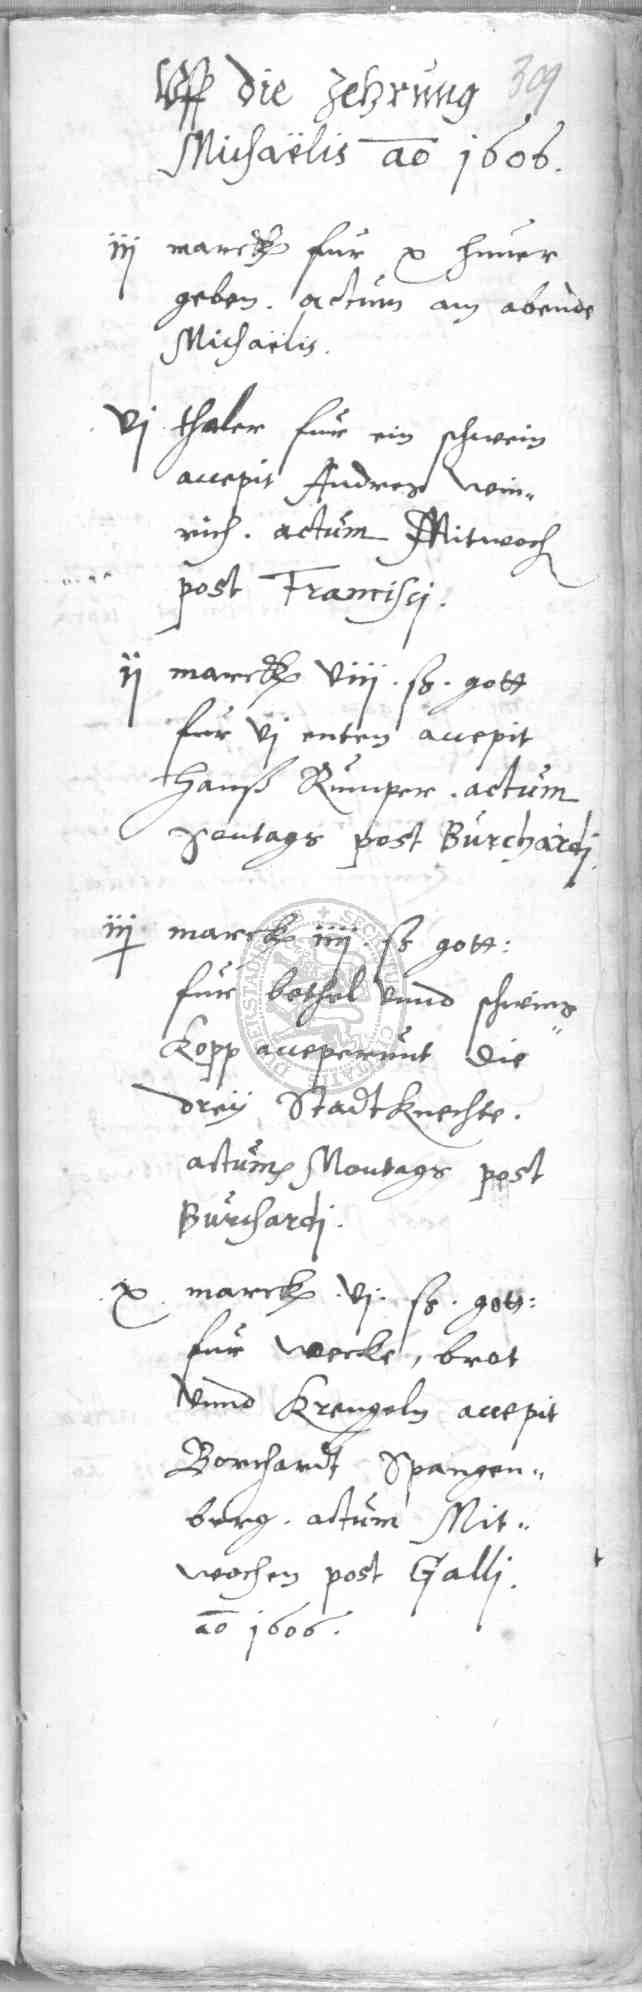 Uff die Zehrung 309
Michaëlis ao 1606.
iij marck für x huner
geben. actum am abende
Michaëlis.
vj thaler für ein schwein
accepit Andres Win-
rich. actum Mitwoch
post Francisci.
ij marck viij. ß. gott
für vj enten accepit
Hanß Rumper. actum
Sontags post Burchardi.
iij marck iiij. ß gott:
für bothel unnd schweins
Kopp acceperunt die
drey Stadtknechte.
actum Montags post
Burchardi.
x. marck. vj. ß. gott:
für wecke, brot
unnd Krengeln accepit
Borchardt Spangen-
berg. actum Mit-
wochen post Galli.
ao 1606.